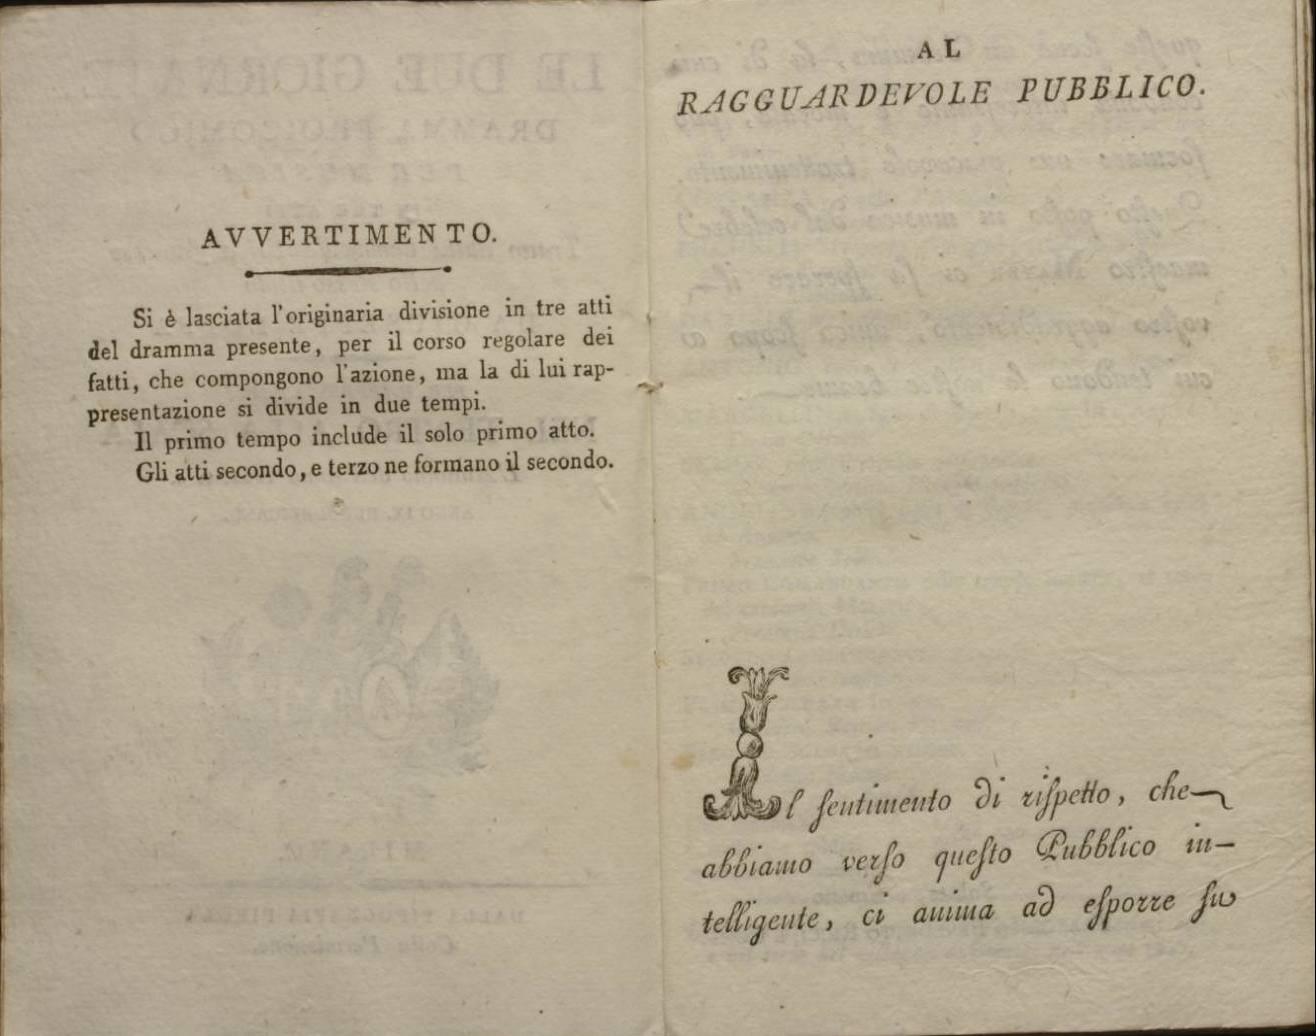 AVVERTIMENTO.
Si è lasciata l'originaria divisione in tre atti
del dramma presente, per il corso regolare dei
fatti, che compongono l'azione, ma la di lui rap-
presentazione si divide in due tempi.
Il primo tempo include il solo primo atto.
Gli atti secondo, e terzo ne formano il secondo.
AL
RAGGUARDEVOLE PUBBLICO.
Il sentimento di rispetto, che
abbiamo verso questo Pubblico in-
telligente, ci anima ad esporre su